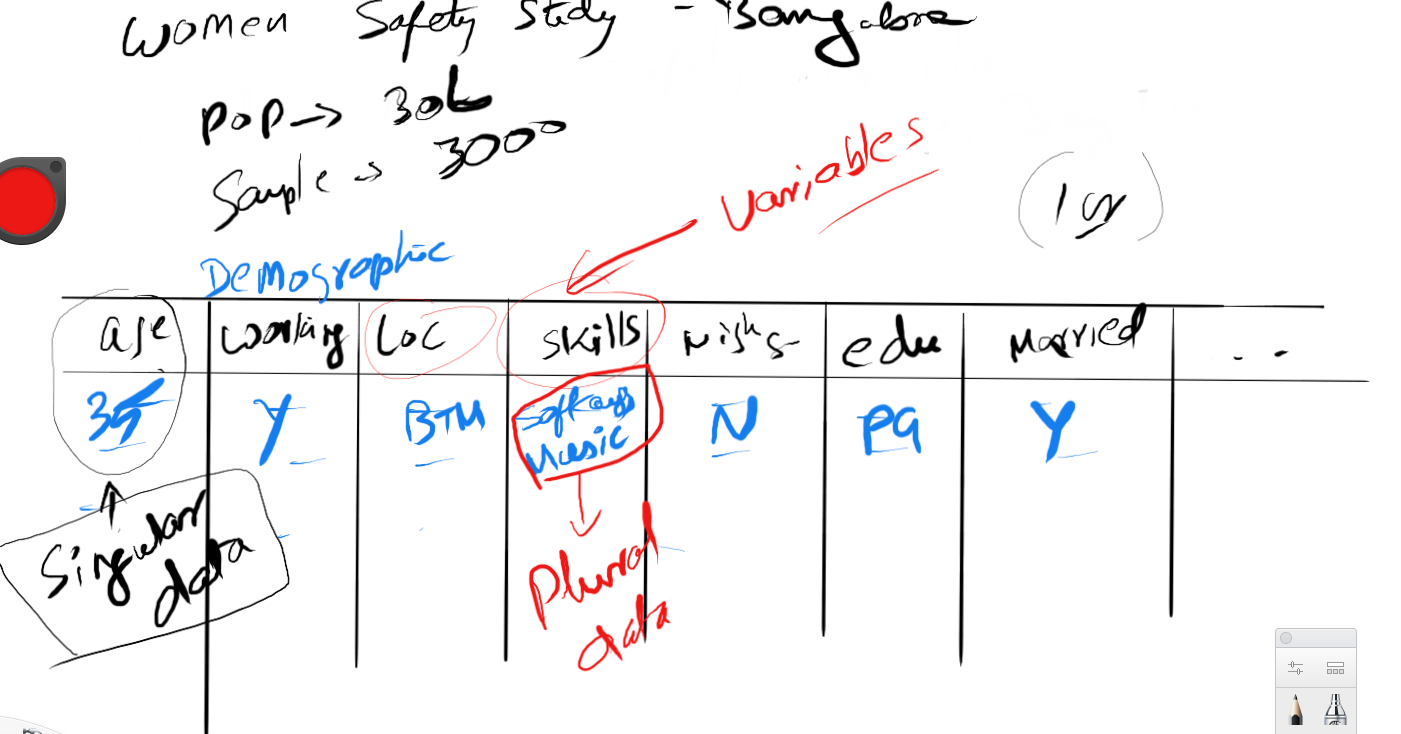 Women Safety Study - Bangalore
Pop → 30L
Sample → 3000
Variables
1 cr
Demographic
age working Loc skills edu Married ..
35 Y BTM Music N PG Y
Singular data
Plural data